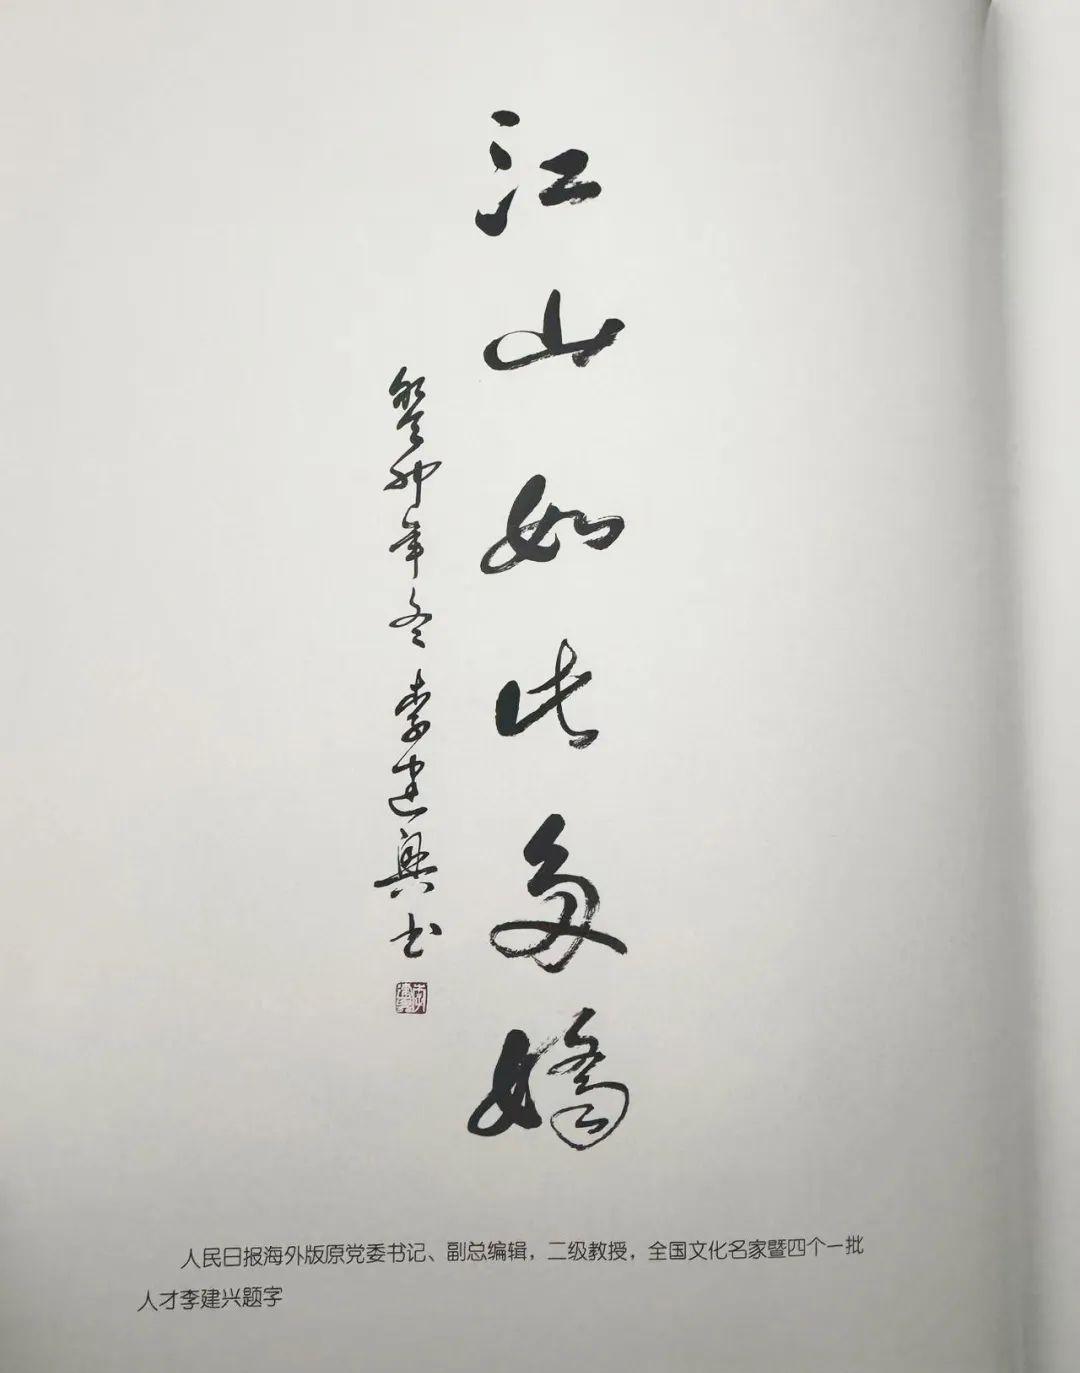 江山如此多嬌
癸卯年冬 李建興书
人民日报海外版原党委书记、副总编辑，二级教授，全国文化名家暨四个一批
人才李建兴题字